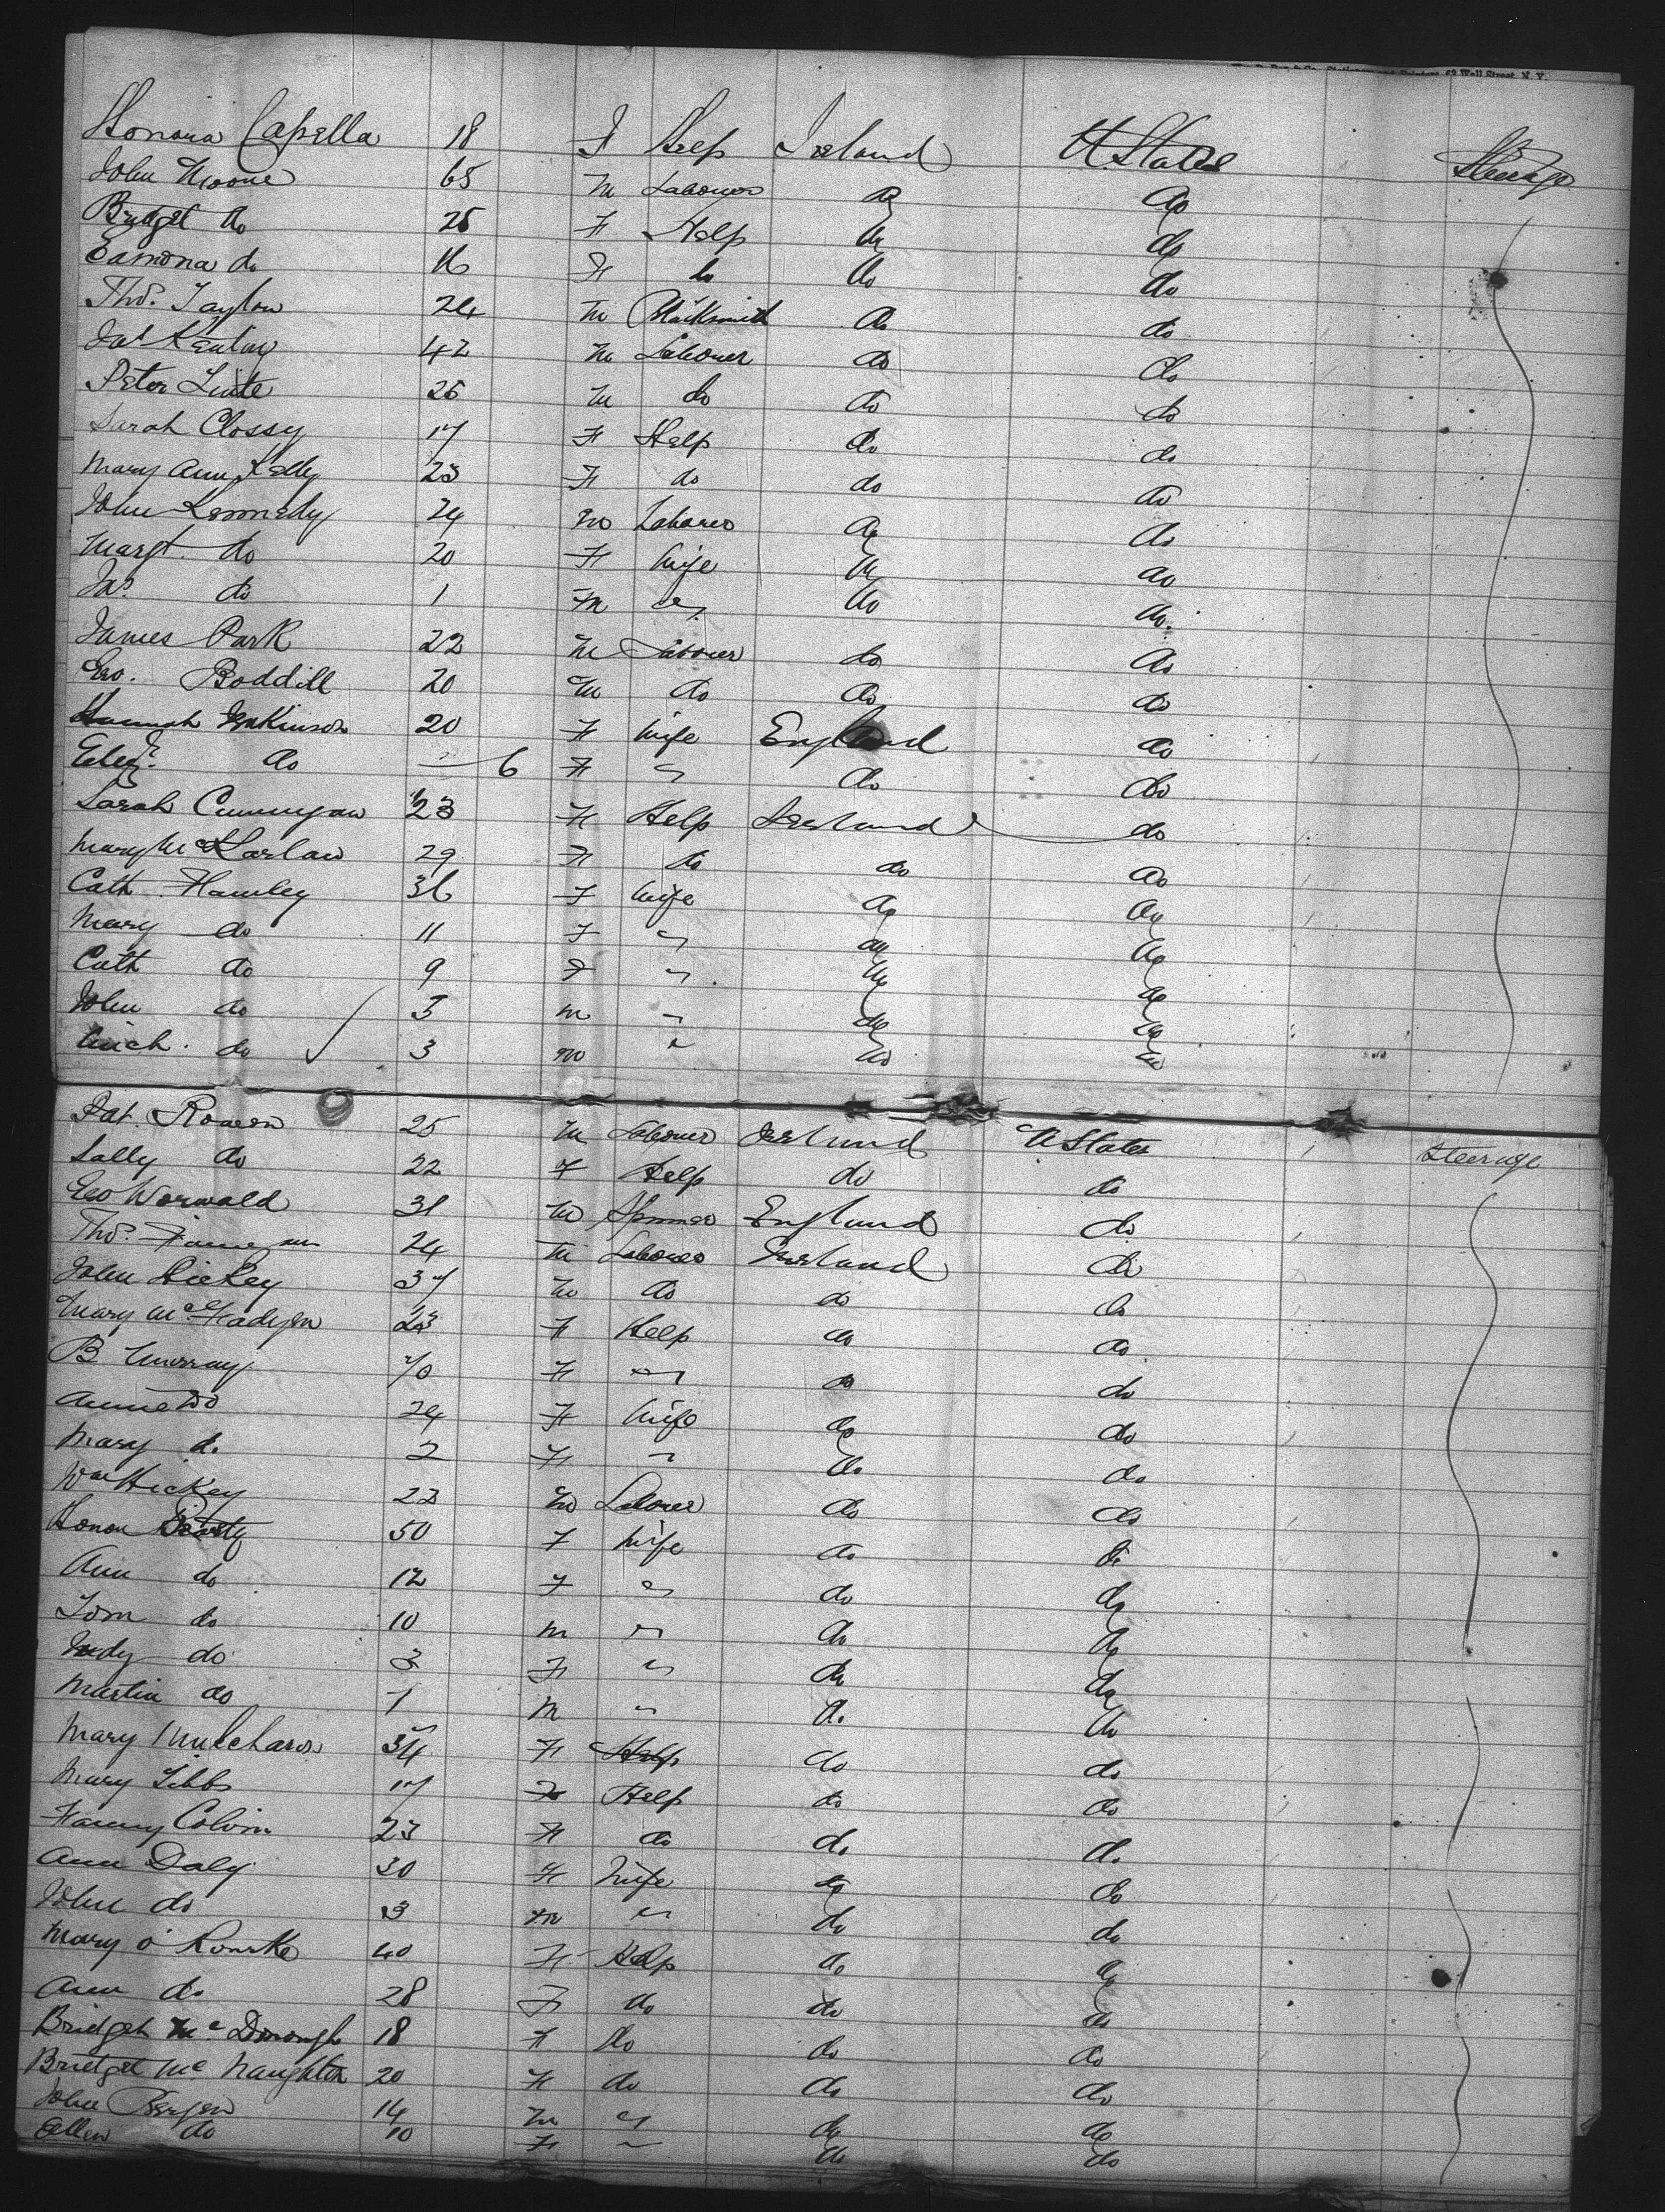 Honora Capella 18 F Help Ireland U. States Steerage
John Moone 65 M Labourer do do
Bridget do 25 F Help do do
do 16 F do do do
Thos. Taylor 24 M Blacksmith do do
Jas Kenlay 42 M Labourer do do
Peter 25 M do do do
Sarah Clossy 17 F Help do do
Mary Ann Kelly 23 F do do do
John Kennedy 24 M Laborer do do
Margt. do 20 F Wife do do
Jas. do 1 M " do do
James Park 22 M Labourer do do
Geo. Boddill 20 M do do do
Hannah Jenkinson 20 F Wife England do
Eliz. do 6 F " do do
Sarah 23 F Help Ireland do
Mary 29 F do do do
Cath Hanley 36 F Wife do do
Mary do 11 F " do do
Cath do 9 F " do do
John do 5 M " do do
Mich. do 3 M " do do
Pat. Rowen 25 M Labourer Ireland U States Steerage
Sally do 22 F Help do do
Geo Worwald 31 M Spinner England do
Thos. 24 M Labourer Ireland do
John Hickey 37 M do do do
Mary McFadyen 23 F Help do do
B Murray 70 F " do do
Annie Do 24 F Wife do do
Mary do 2 F " do do
Wm Hickey 22 M Laborer do do
Honor 50 F Wife do do
Ann do 12 F " do do
Tom do 10 M " do do
Judy do 3 F " do do
Martin do 1 M " do do
Mary 34 F Help do do
Mary Tibbs 17 F Help do do
Fanny Colvin 23 F do do do
Ann Daly 30 F Wife do do
John do 3 M " do do
Mary O'Rourke 40 F Help do do
Ann do 28 F do do do
Bridget McDonough 18 F do do do
Bridget McNaughton 20 F do do do
John Bergen 14 M " do do
Ellen do 10 F " do do